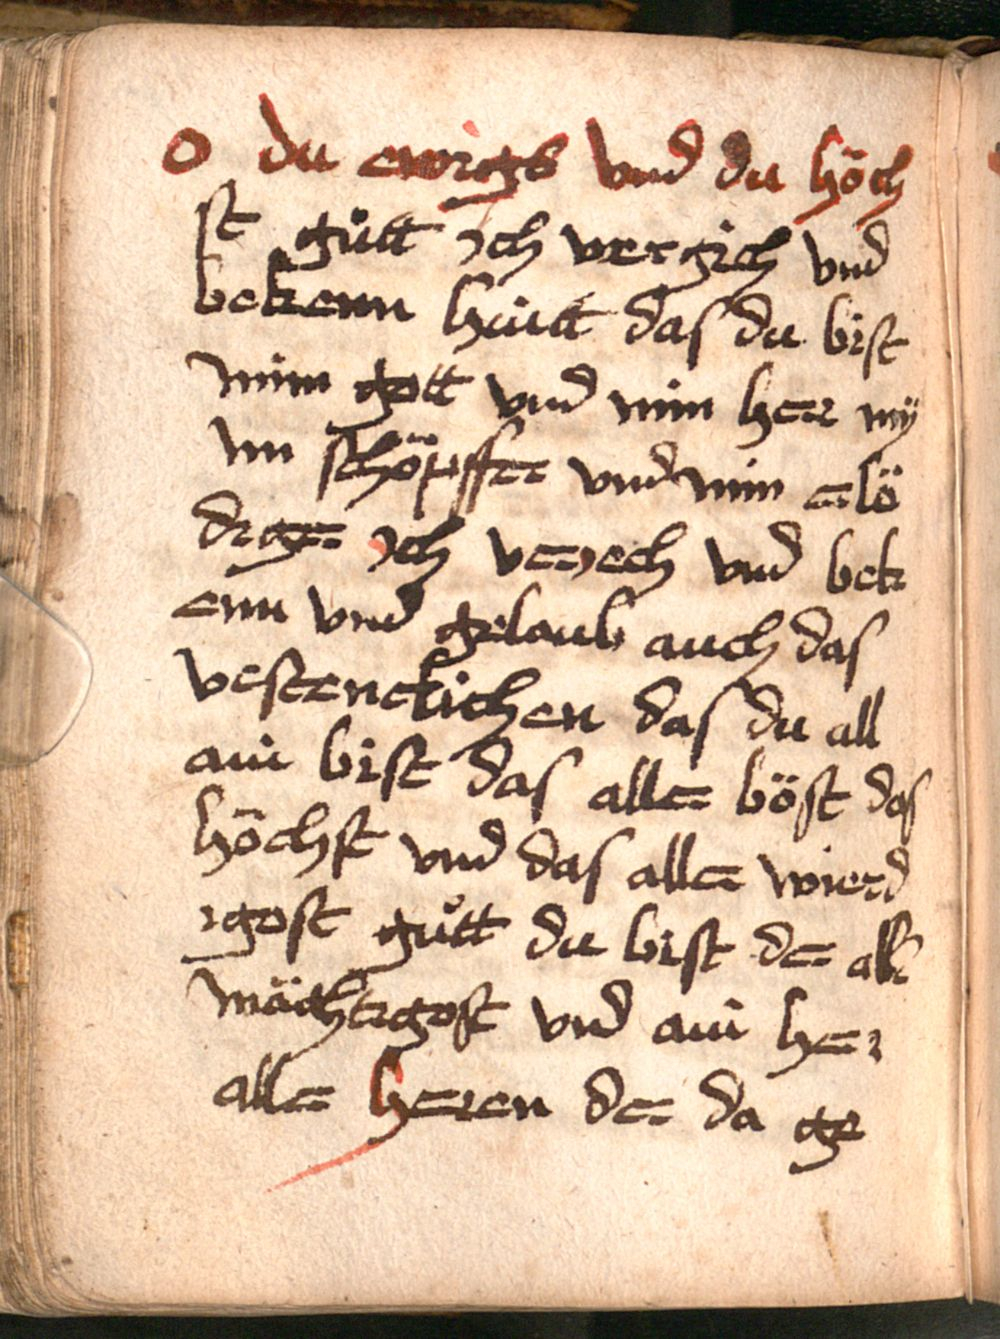 O du ewigs vnd du höch
st gůtt Ich vergich vnd
bekenn hütt das du bist
minn gott vnd min herr my
nn schöpffer vnd min erlö
diger Ich veriech vnd bek
enn vnd gelaub auch das
vestencklichen das du all
ain bist das aller böst das
höchst vnd das aller wierd
igost gůtt du bist der all
mächtigost vnd ain herr
aller heren der da ge